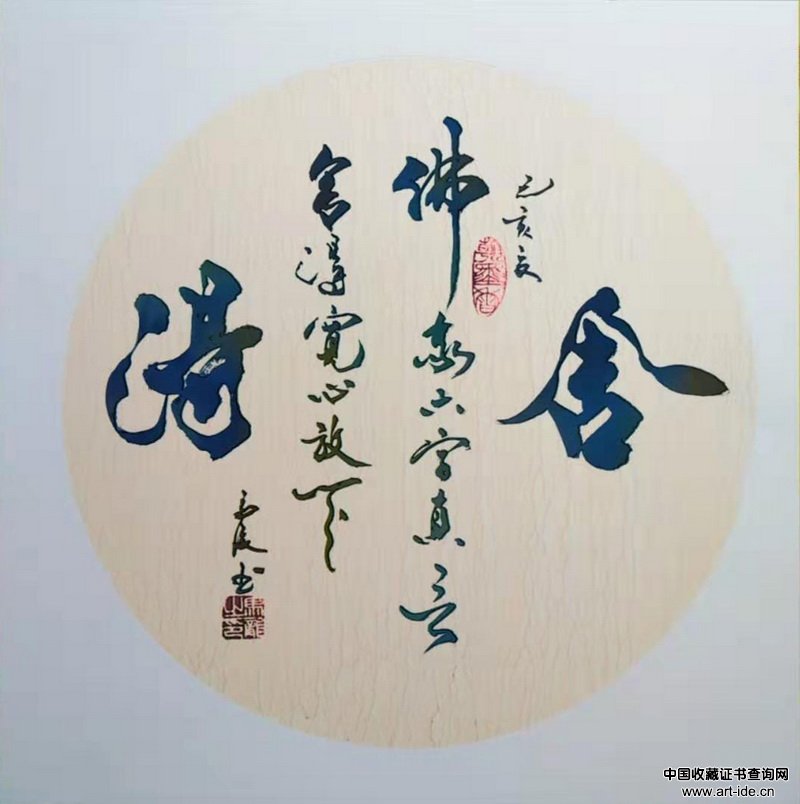 舍
己亥夏
佛教六字真言
舍得寬心放下
得
书
中国收藏证书查询网
www.art-ide.cn